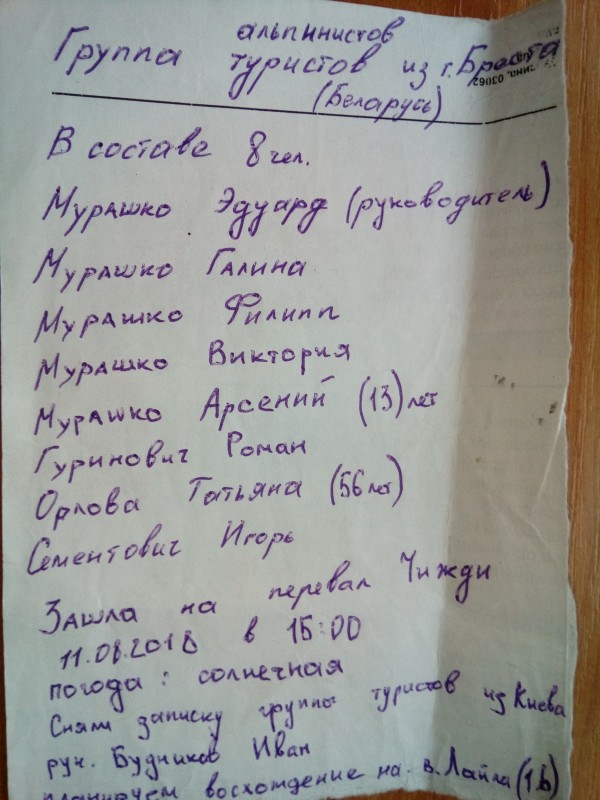 Группа альпинистов
туристов из г. Бреста
(Беларусь)
В составе 8 чел.
Мурашко Эдуард (руководитель)
Мурашко Галина
Мурашко Филипп
Мурашко Виктория
Мурашко Арсений (13) лет
Гуринович Роман
Орлова Татьяна (56 лет)
Сементович Игорь
Зашла на перевал Чижди
11.08.2018 в 15:00
погода: солнечная
Сняли записку группы туристов из Киева
рук. Будников Иван
планируем восхождение на в. Лайла (1б)